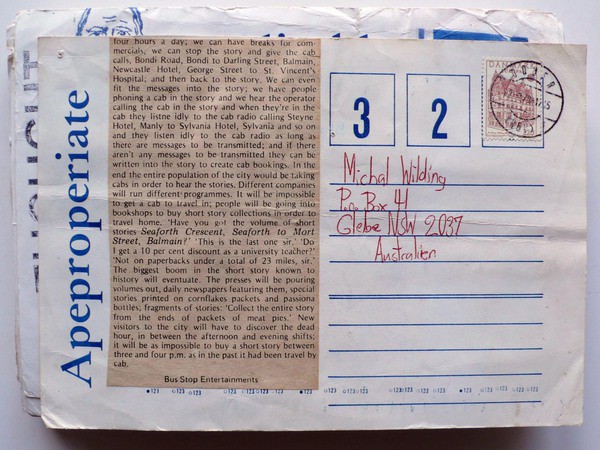 Apeproperiate
four hours a day; we can have breaks for com-
mercials, we can stop the story and give the cab
calls, Bondi Road, Bondi to Darling Street, Balmain,
Newcastle Hotel, George Street to St. Vincent's
Hospital; and then back to the story. We can even
fit the messages into the story; we have people
phoning a cab in the story and we hear the operator
calling the cab in the story and when they're in the
cab they listne idly to the cab radio calling Steyne
Hotel, Manly to Sylvania Hotel, Sylvania and so on
and they listen idly to the cab radio as long as
there are messages to be transmitted; and if there
aren't any messages to be transmitted they can be
written into the story to create cab bookings. In the
end the entire population of the city would be taking
cabs in order to hear the stories. Different companies
will run different programmes. It will be impossible
to get a cab to travel in; people will be going into
bookshops to buy short story collections in order to
travel home. 'Have you got the volume of short
stories Seaforth Crescent, Seaforth to Mort
Street, Balmain?' 'This is the last one sir.' 'Do
I get a 10 per cent discount as a university teacher?'
'Not on paperbacks under a total of 23 miles, sir.'
The biggest boom in the short story known to
history will eventuate. The presses will be pouring
volumes out, daily newspapers featuring them, special
stories printed on cornflakes packets and passiona
bottles; fragments of stories: 'Collect the entire story
from the ends of packets of meat pies.' New
visitors to the city will have to discover the dead
hour, in between the afternoon and evening shifts;
it will be as impossible to buy a short story between
three and four p.m. as in the past it had been travel by
cab.
Bus Stop Entertainments
3 2
DANMARK
Michal Wilding
P.o. Box 41
Glebe NSW 2037
Australien
●123 ○123 ○123